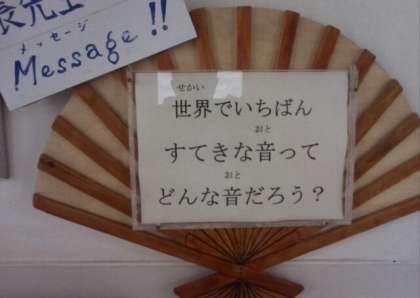 長先生
メッセージ
Message!!
せかい
世界でいちばん
おと
すてきな音って
おと
どんな音だろう？